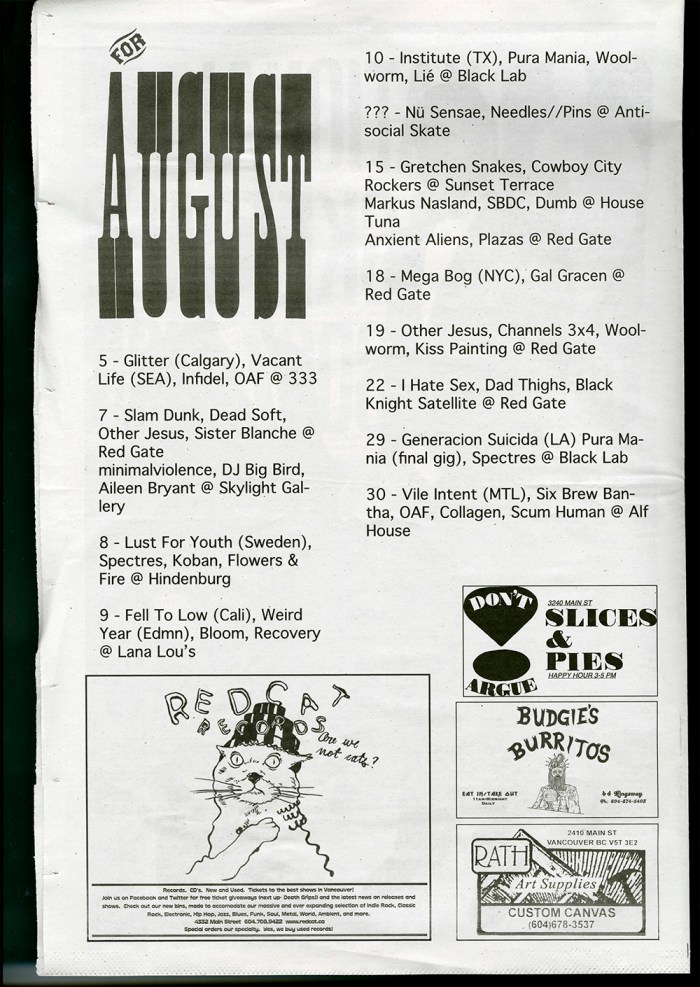 FOR
AUGUST
5 - Glitter (Calgary), Vacant
Life (SEA), Infidel, OAF @ 333
7 - Slam Dunk, Dead Soft,
Other Jesus, Sister Blanche @
Red Gate
minimalviolence, DJ Big Bird,
Aileen Bryant @ Skylight Gal-
lery
8 - Lust For Youth (Sweden),
Spectres, Koban, Flowers &
Fire @ Hindenburg
9 - Fell To Low (Cali), Weird
Year (Edmn), Bloom, Recovery
@ Lana Lou's
10 - Institute (TX), Pura Mania, Wool-
worm, Lié @ Black Lab
??? - Nü Sensae, Needles//Pins @ Anti-
social Skate
15 - Gretchen Snakes, Cowboy City
Rockers @ Sunset Terrace
Markus Nasland, SBDC, Dumb @ House
Tuna
Anxient Aliens, Plazas @ Red Gate
18 - Mega Bog (NYC), Gal Gracen @
Red Gate
19 - Other Jesus, Channels 3x4, Wool-
worm, Kiss Painting @ Red Gate
22 - I Hate Sex, Dad Thighs, Black
Knight Satellite @ Red Gate
29 - Generacion Suicida (LA) Pura Ma-
nia (final gig), Spectres @ Black Lab
30 - Vile Intent (MTL), Six Brew Ban-
tha, OAF, Collagen, Scum Human @ Alf
House
REDCAT
RECORDS
Are we
not cats?
Records. CD's. New and Used. Tickets to the best shows in Vancouver!
Join us on Facebook and Twitter for free ticket giveaways (next up- Death Grips!) and the latest news on releases and
shows. Check out our new bins, made to accomodate our massive and ever expanding selection of Indie Rock, Classic
Rock, Electronic, Hip Hop, Jazz, Blues, Funk, Soul, Metal, World, Ambient, and more.
4332 Main Street 604.708.9422 www.redcat.ca
Special orders our specialty. Yes, we buy used records!
DON'T
ARGUE
3240 MAIN ST
SLICES
&
PIES
HAPPY HOUR 3-5 PM
BUDGIE'S
BURRITOS
EAT IN/TAKE OUT
11AM-MIDNIGHT
DAILY
44 Kingsway
Ph. 604-874-5408
2410 MAIN ST
VANCOUVER BC V5T 3E2
RATH
Art Supplies
CUSTOM CANVAS
(604)678-3537